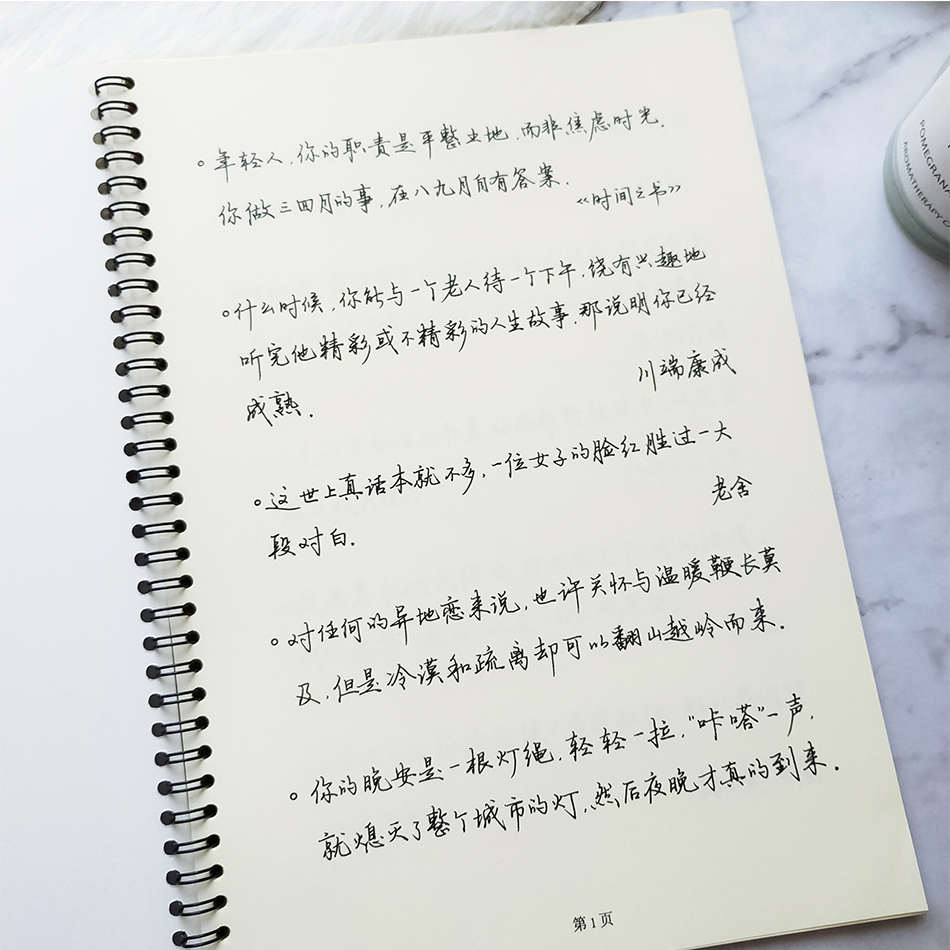 年轻人,你的职责是平整土地,而非焦虑时光.
你做三四月的事,在八九月自有答案.
《时间之书》
什么时候,你能与一个老人待一个下午,饶有兴趣地
听完他精彩或不精彩的人生故事.那说明你已经
成熟.
川端康成
这世上真话本就不多,一位女子的脸红胜过一大
段对白.
老舍
对任何的异地恋来说,也许关怀与温暖鞭长莫
及,但是冷漠和疏离却可以翻山越岭而来.
你的晚安是一根灯绳,轻轻一拉,“咔嗒”一声,
就熄灭了整个城市的灯,然后夜晚才真的到来.
第1页
POMEGRANA
AROMATHERAPY C